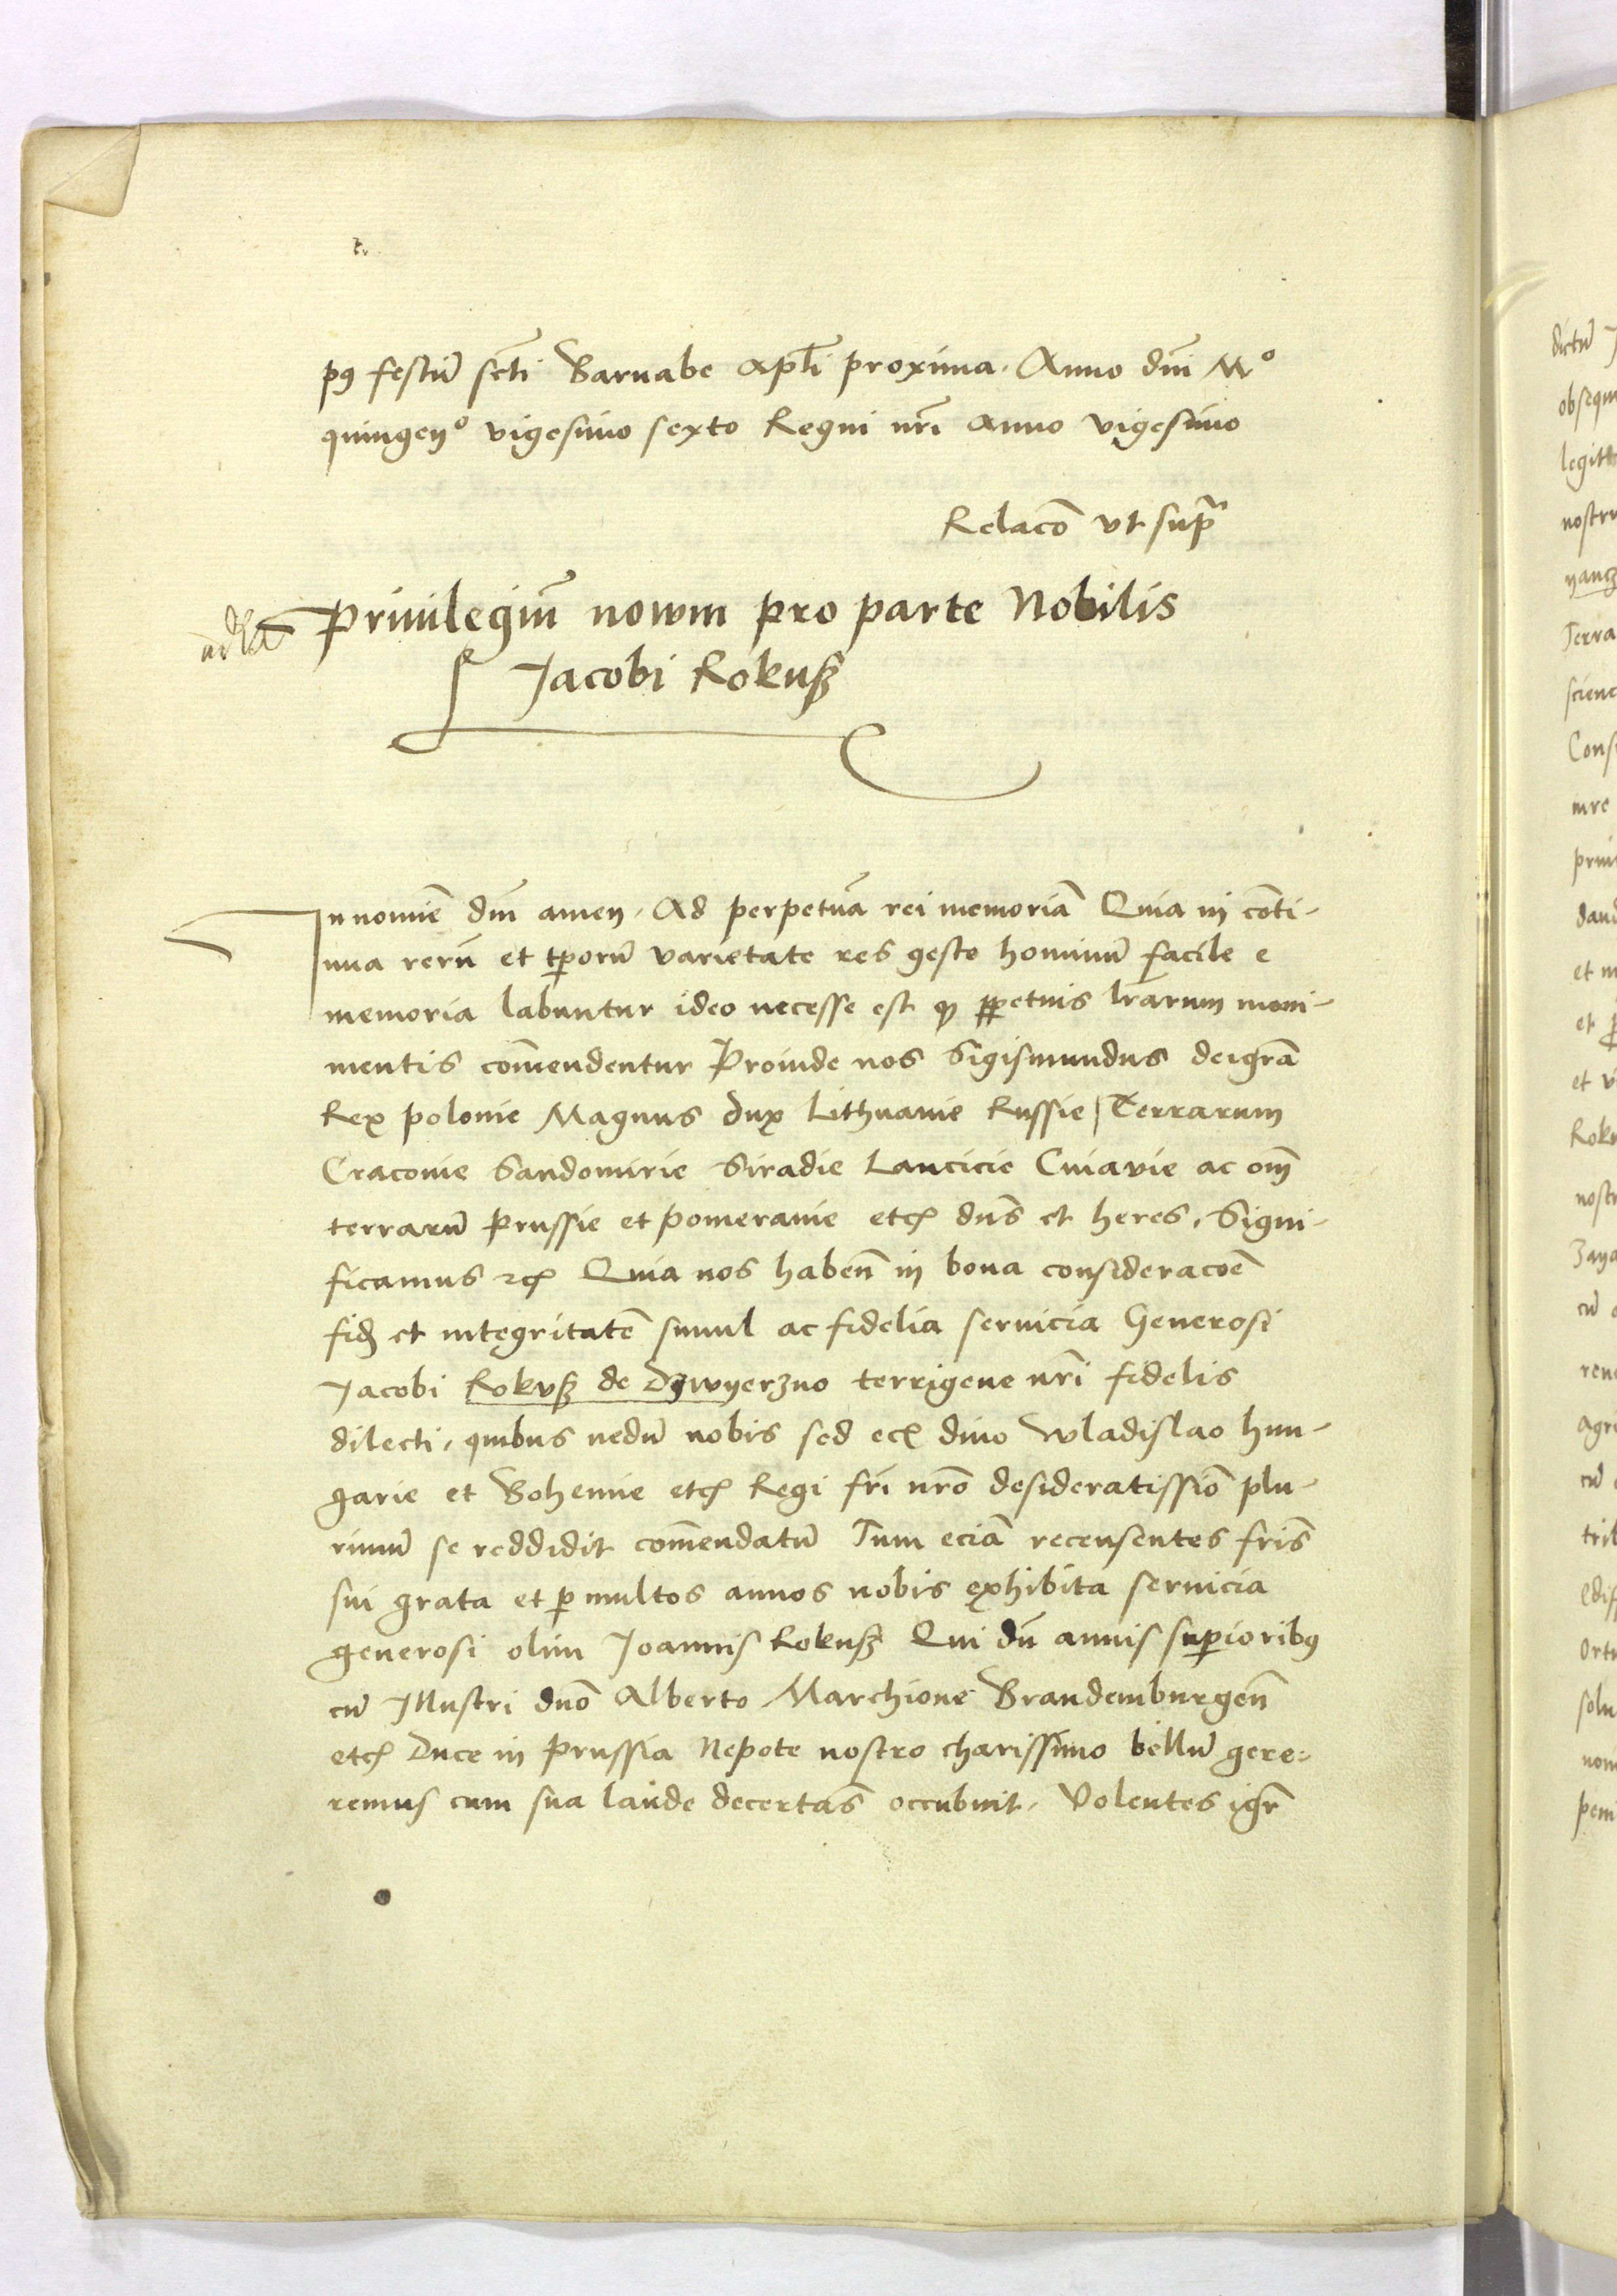 pꝯ festū scti Barnabe Apli proxima. Anno dni Mº
quingenº vigesimo sexto Regni nri Anno vigesimo
Relacō vt supra
Priuilegiū nowm pro parte Nobilis
Jacobi Rokusz
In nomīe dni amen. Ad perpetuā rei memoriā Quia in cōti-
nua rerū et tporū varietate res geste hominū facile e
memoria labuntur ideo necesse est qꝫ ꝑpetuis lrarum moni-
mentis cōmendentur Proinde nos Sigismundus dei grā
Rex polonie Magnus dux Lithuanie Russie, Terrarum
Cracouie Sandomirie Siradie Lancicie Cuiavie ac om̄
terrarū Prussie et pomeranie etc̄ dns et heres. Signi-
ficamus ꝛc̄ Quia nos habeñ in bona consideracōe
fidē et integritatē simul ac fidelia seruicia Generosi
Jacobi Rokvsz de Dzwyerzno terrigene nri fidelis
dilecti, quibus nedū nobis sed ec̄ diuo Wladislao hun-
garie et Bohemie etc̄ Regi fri nrō desideratissiō plu-
rimū se reddidit cōmendatū Tum eciā recensentes fris
sui grata et ꝑ multos annos nobis exhibita seruicia
generosi olim Joannis Rokusz Qui dū annis suꝑioribꝯ
cū Illustri dnō Alberto Marchione Brandemburgeñ
etc̄ Duce in Prussia Nepote nostro charissimo bellū gere-
remus cum sua laude decertās occubuit. Volentes igr̄